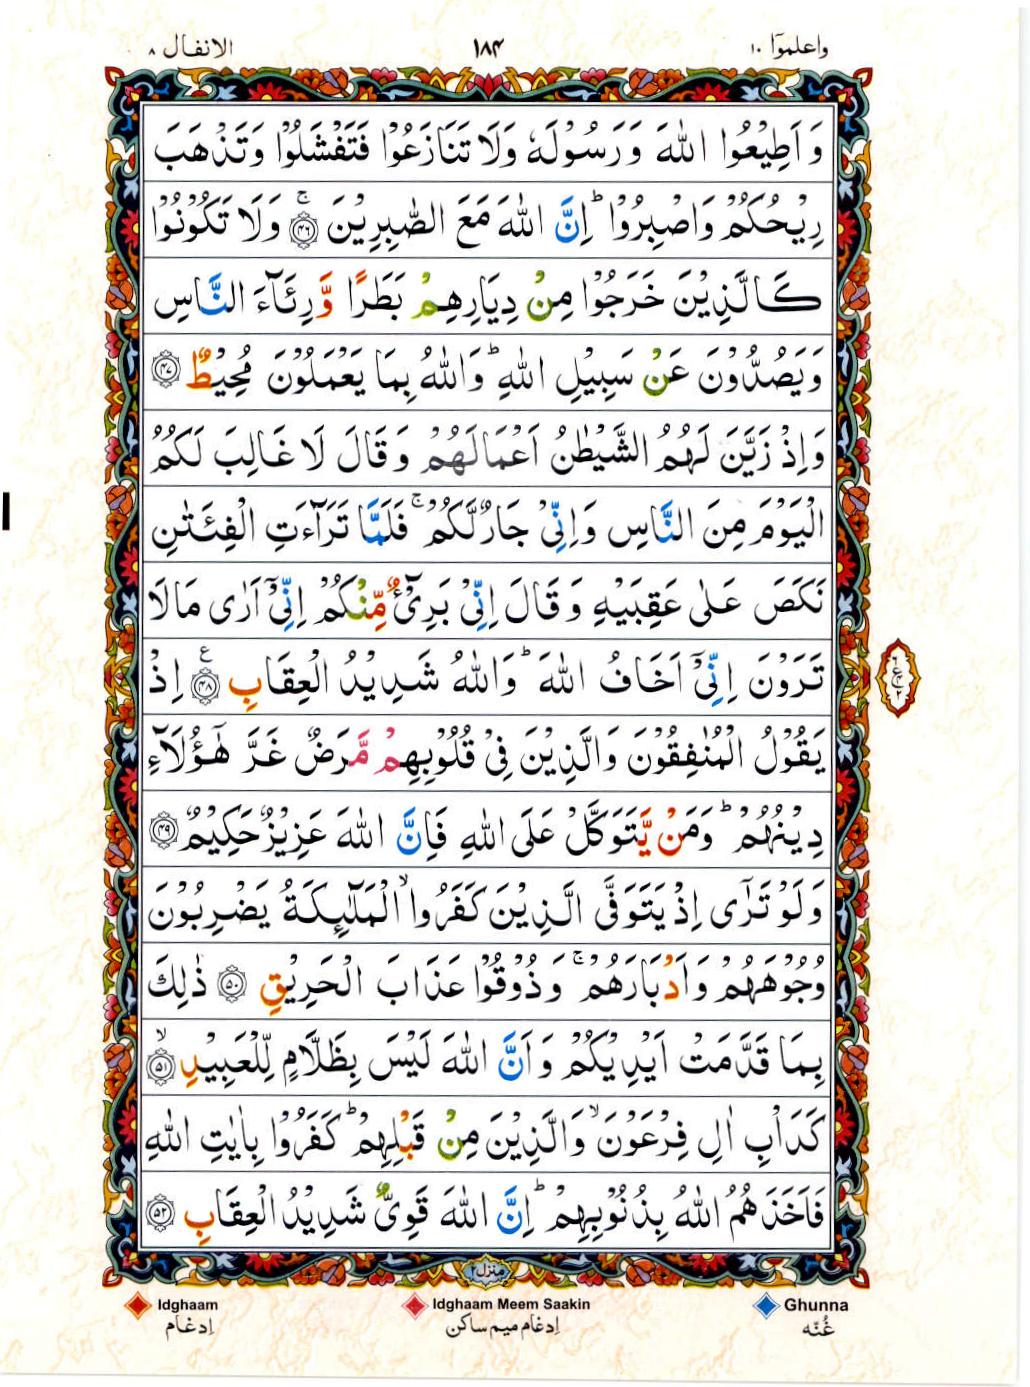 واعلموٓا ۱۰ ۱۸۴ الانفال ۸
وَاَطِيْعُوا اللّٰهَ وَرَسُوْلَهٗ وَلَا تَنَازَعُوْا فَتَفْشَلُوْا وَتَذْهَبَ
رِيْحُكُمْ وَاصْبِرُوْا ؕ اِنَّ اللّٰهَ مَعَ الصّٰبِرِيْنَ ۚ﴿۴۶﴾ وَلَا تَكُوْنُوْا
كَالَّذِيْنَ خَرَجُوْا مِنْ دِيَارِهِمْ بَطَرًا وَّرِئَآءَ النَّاسِ
وَيَصُدُّوْنَ عَنْ سَبِيْلِ اللّٰهِ ؕ وَاللّٰهُ بِمَا يَعْمَلُوْنَ مُحِيْطٌ ﴿۴۷﴾
وَاِذْ زَيَّنَ لَهُمُ الشَّيْطٰنُ اَعْمَالَهُمْ وَقَالَ لَا غَالِبَ لَكُمُ
الْيَوْمَ مِنَ النَّاسِ وَاِنِّيْ جَارٌ لَّكُمْ ۚ فَلَمَّا تَرَآءَتِ الْفِئَتٰنِ
نَكَصَ عَلٰى عَقِبَيْهِ وَقَالَ اِنِّيْ بَرِيْٓءٌ مِّنْكُمْ اِنِّيْٓ اَرٰى مَا لَا
تَرَوْنَ اِنِّيْٓ اَخَافُ اللّٰهَ ؕ وَاللّٰهُ شَدِيْدُ الْعِقَابِ ﴿۴۸﴾ ع اِذْ
يَقُوْلُ الْمُنٰفِقُوْنَ وَالَّذِيْنَ فِيْ قُلُوْبِهِمْ مَّرَضٌ غَرَّ هٰٓؤُلَآءِ
دِيْنُهُمْ ؕ وَمَنْ يَّتَوَكَّلْ عَلَى اللّٰهِ فَاِنَّ اللّٰهَ عَزِيْزٌ حَكِيْمٌ ﴿۴۹﴾
وَلَوْ تَرٰٓى اِذْ يَتَوَفَّى الَّذِيْنَ كَفَرُوا ۙ الْمَلٰٓئِكَةُ يَضْرِبُوْنَ
وُجُوْهَهُمْ وَاَدْبَارَهُمْ ۚ وَذُوْقُوْا عَذَابَ الْحَرِيْقِ ﴿۵۰﴾ ذٰلِكَ
بِمَا قَدَّمَتْ اَيْدِيْكُمْ وَاَنَّ اللّٰهَ لَيْسَ بِظَلَّامٍ لِّلْعَبِيْدِ ۙ﴿۵۱﴾
كَدَاْبِ اٰلِ فِرْعَوْنَ ۙ وَالَّذِيْنَ مِنْ قَبْلِهِمْ ؕ كَفَرُوْا بِاٰيٰتِ اللّٰهِ
فَاَخَذَهُمُ اللّٰهُ بِذُنُوْبِهِمْ ؕ اِنَّ اللّٰهَ قَوِيٌّ شَدِيْدُ الْعِقَابِ ﴿۵۲﴾
منزل ۲
Idghaam Idghaam Meem Saakin Ghunna
اِدغام اِدغام میم ساکن غُنّه